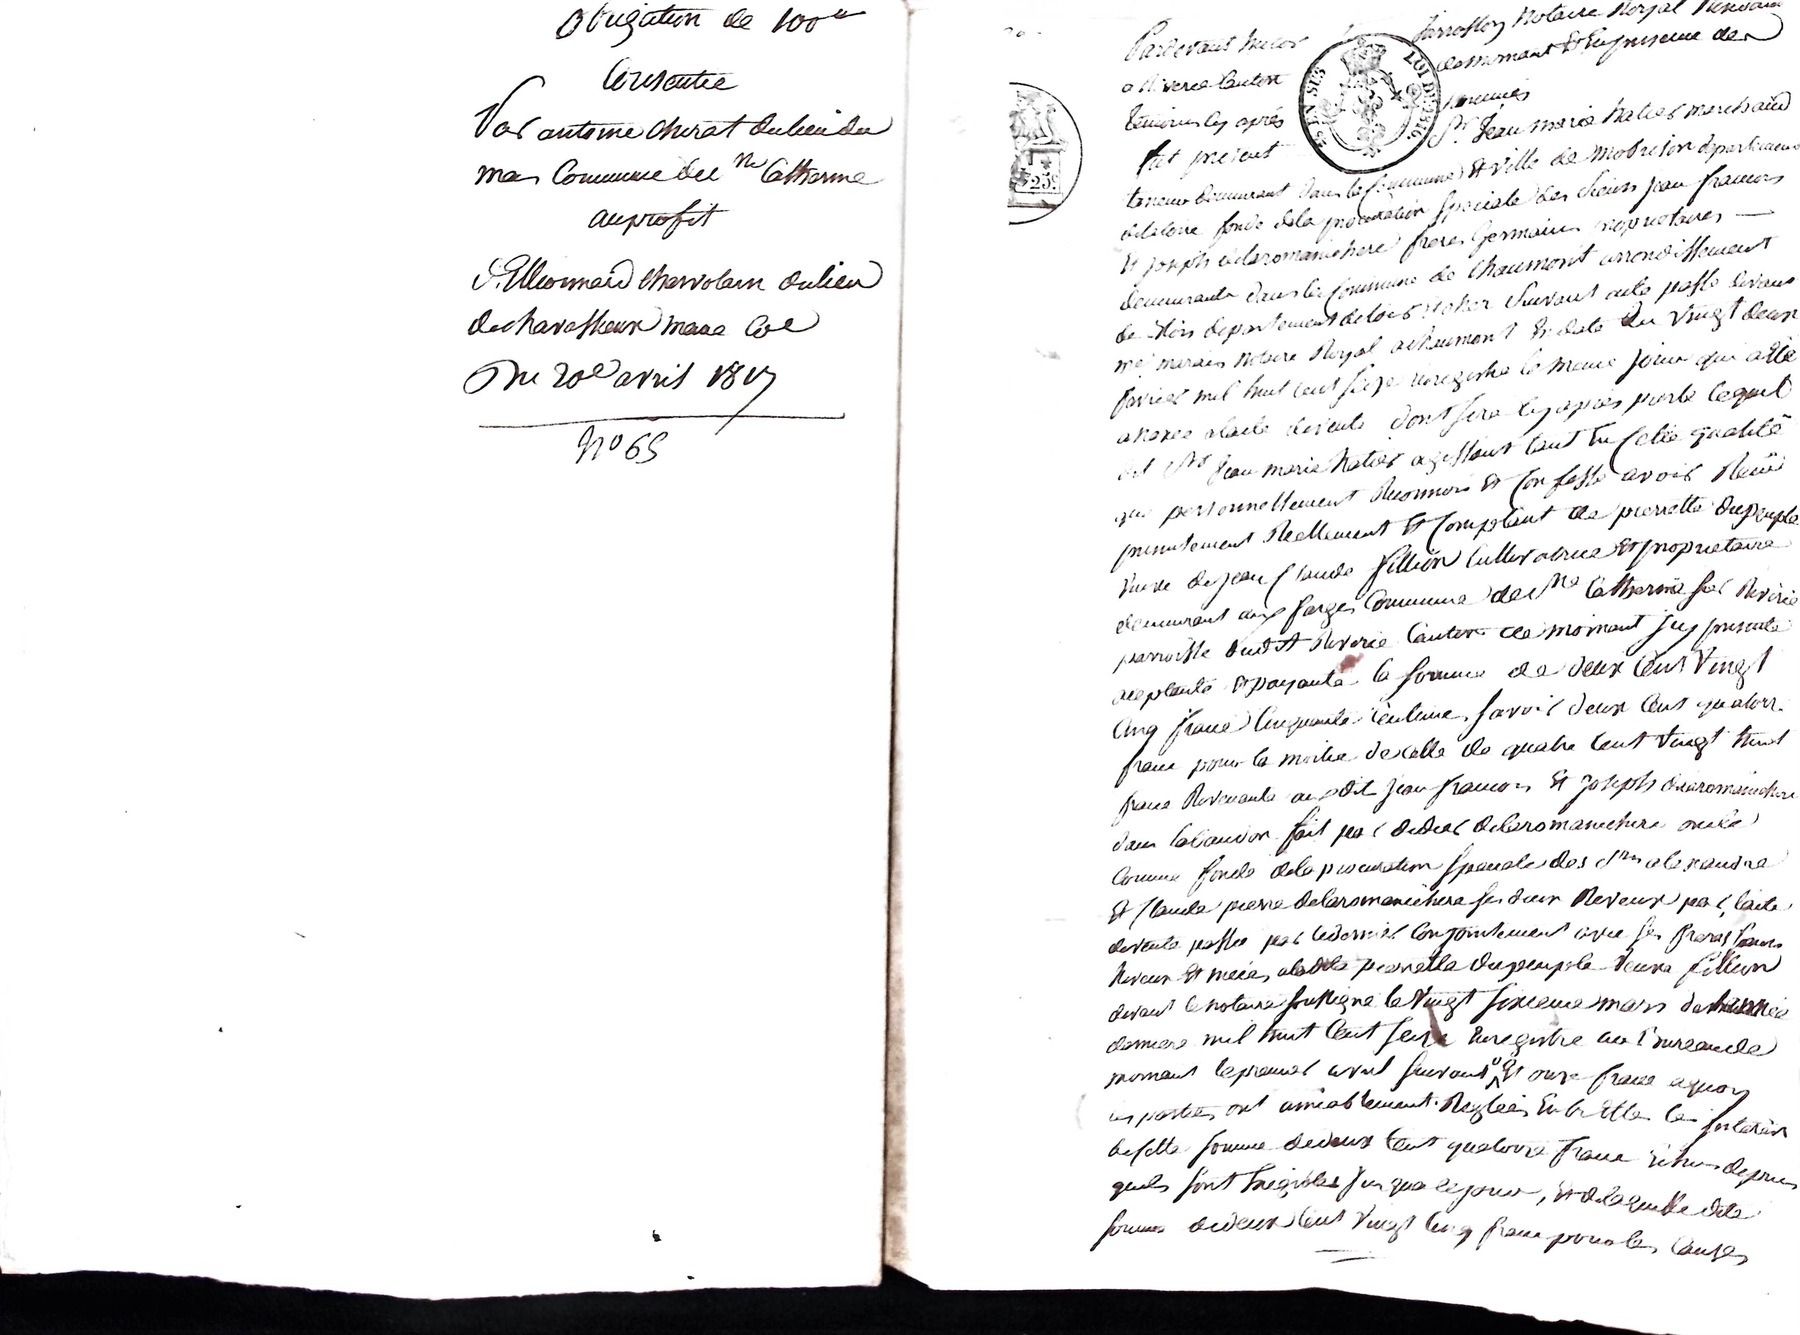 Obligation de 100 ll
Consentie
Par antoine Chirat du lieu du
mas Commune de Ste Catherine
au profit
S. Leonnard Chervolain du lieu
de chavasseux meme Cne
Du 20e avril 1817
No 65
Pardevant Notaire Royal Residant
a Riverie Canton de mornant Et En presence des
temoins cy après nommés
fut present Sr. Jean Marie Natier marchand
taneur demeurant dans la Commune Et ville de Mobrison departement
de la loire fondé de la procuration Speciale des Sieurs jean francois
Et joseph delaromanichere freres Germains propriétaires
demeurants dans la Commune de Chaumont arrondissement
de Blois departement de loir Et cher Suivant acte passé devant
me marais Notaire Royal a chaumont En date du Vingt deux
fevrier mil huit cent seize enregistré le meme jour qui a été
annexé a l'acte de vente dont sera cy après parlé lequel
dit Sr Jean Marie Natier agissant tant En Cette qualité
que personnellement Reconnoit Et Confesse avoir Recu
presentement Reellement Et Comptant de pierrette Dupeuple
Veuve de Jean Claude fillion Cultivatrice Et proprietaire
demeurant aux farges Commune de Ste Catherine sur Riverie
parroisse dudit Riverie Canton de mornant Icy presente
acceptante Et payante la somme de deux Cent Vingt
Cinq franc Cinquante Centime, savoir deux Cent quatorze
franc pour la moitié de celle de quatre Cent Vingt huit
franc Revenante au dit jean francois Et joseph delaromanichere
dans l'abandon fait par didier delaromanichere oncle
Comme fondé de la procuration speciale des Srs alexandre
Et Claude pierre delaromanichere ses deux Neveux par l'acte
de vente passé par ce dernier Conjointement avec ses freres soeurs
Neveux Et nieces a ladite pierrette Dupeuple Veuve fillion
devant le notaire soussigné le Vingt sixieme mars de l'année
derniere mil huit Cent seize Enregistré au Bureau de
mornant le premier avril suivant Et onze franc a quoy
les parties ont amiablement Reglées Entr'Elles les
de Cette somme de deux Cent quatorze franc Echus depuis
quels sont Exigibles jusqua ce jour, Et de laquelle dite
somme de deux Cent Vingt Cinq franc pour les Causes